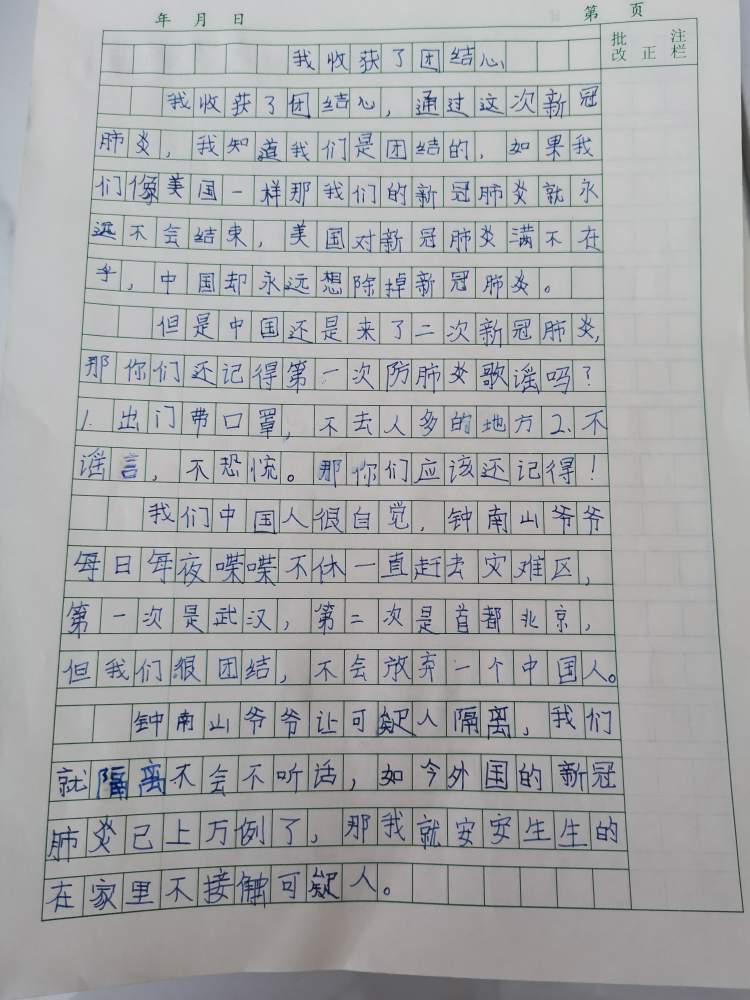 年 月 日 第 页
批 注
改 正 栏
我收获了团结心
我收获了团结心，通过这次新冠
肺炎，我知道我们是团结的，如果我
们像美国一样那我们的新冠肺炎就永
远不会结束，美国对新冠肺炎满不在
乎，中国却永远想除掉新冠肺炎。
但是中国还是来了二次新冠肺炎，
那你们还记得第一次防肺炎歌谣吗？
1.出门带口罩，不去人多的地方2.不
谣言，不恐慌。那你们应该还记得！
我们中国人很自觉，钟南山爷爷
每日每夜喋喋不休一直赶去灾难区，
第一次是武汉，第二次是首都北京，
但我们很团结，不会放弃一个中国人。
钟南山爷爷让可疑人隔离，我们
就隔离不会不听话，如今外国的新冠
肺炎已上万例了，那我就安安生生的
在家里不接触可疑人。